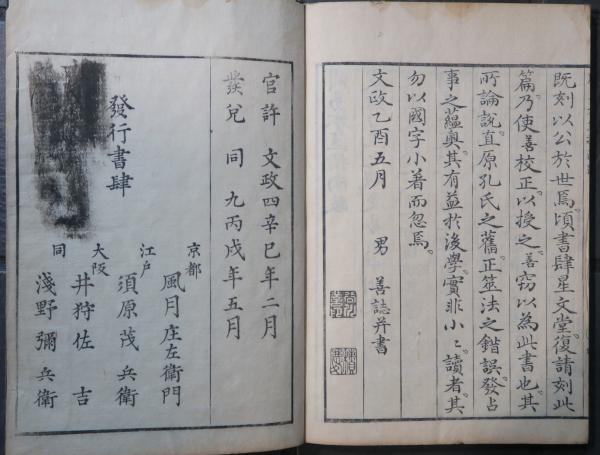 既刻以公於世焉。頃書肆星文堂。復請刻此
篇。乃使善校正。以授之。善窃以為此書也。其
所論説。直原孔氏之舊。正筮法之錯誤。發占
事之蘊奥。其有益於後學。實非小〻。讀者。其
勿以國字小著而忽焉。
文政乙酉五月 男 善誌并書
官許 文政四辛巳年二月
發兌 同 九丙戌年五月
發行書肆
京都 風月庄左衛門
江戸 須原茂兵衛
大阪 井狩佐吉
同 淺野彌兵衛